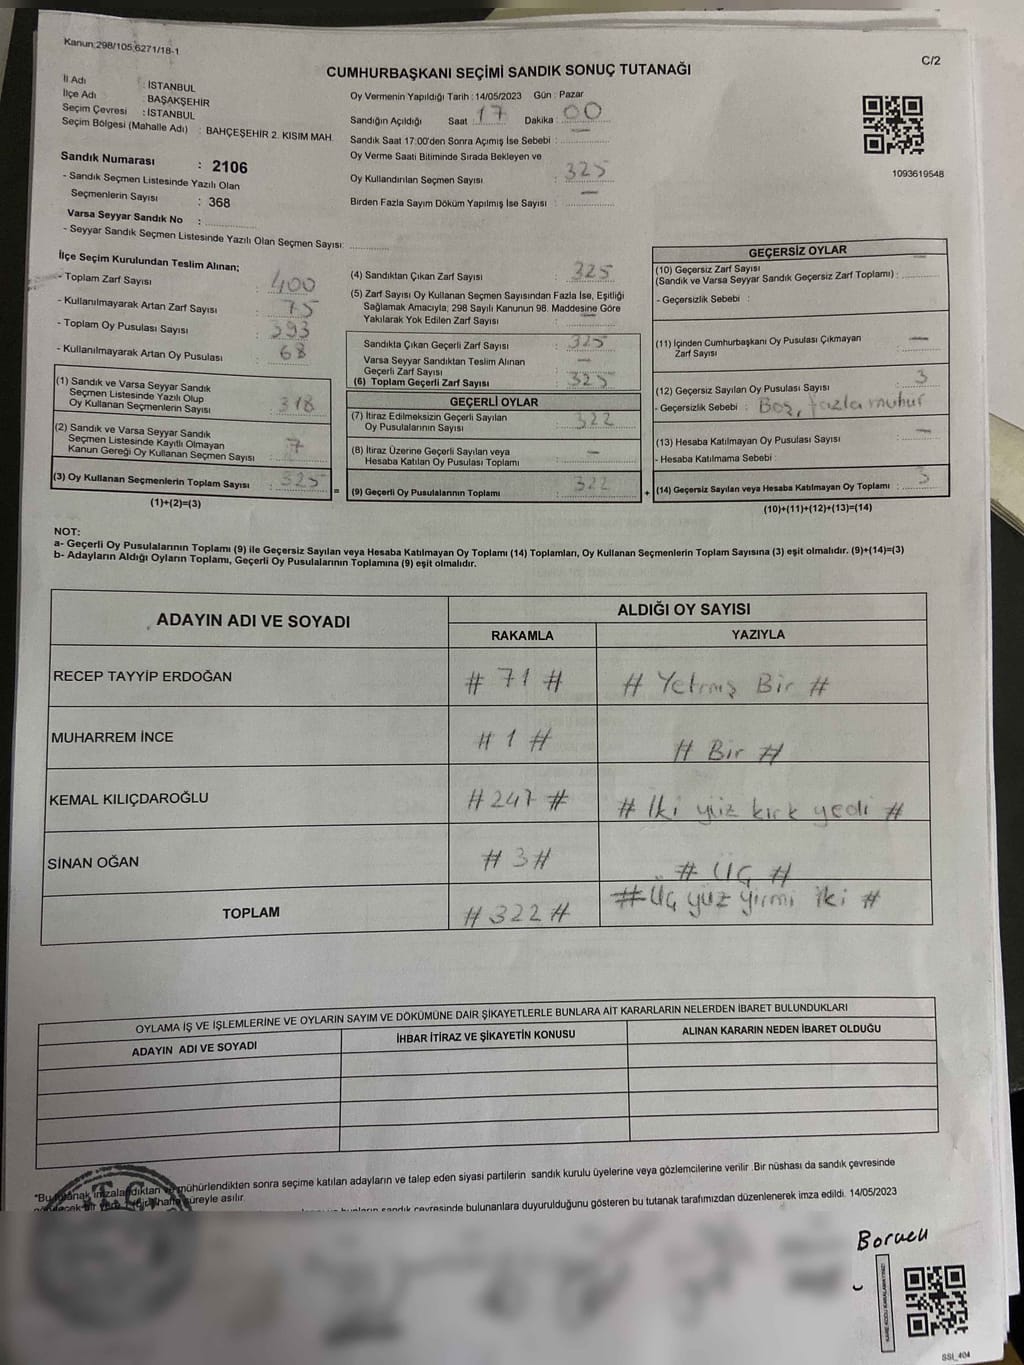 Kanun;298/105,6271/18-1
C/2
CUMHURBAŞKANI SEÇİMİ SANDIK SONUÇ TUTANAĞI
İl Adı : İSTANBUL
İlçe Adı : BAŞAKŞEHİR
Seçim Çevresi : İSTANBUL
Seçim Bölgesi (Mahalle Adı) : BAHÇEŞEHİR 2. KISIM MAH.
Sandık Numarası : 2106
- Sandık Seçmen Listesinde Yazılı Olan
Seçmenlerin Sayısı : 368
Varsa Seyyar Sandık No :
- Seyyar Sandık Seçmen Listesinde Yazılı Olan Seçmen Sayısı:
Oy Vermenin Yapıldığı Tarih : 14/05/2023 Gün : Pazar
Sandığın Açıldığı Saat : 17 Dakika : 00
Sandık Saat 17:00'den Sonra Açımış İse Sebebi : —
Oy Verme Saati Bitiminde Sırada Bekleyen ve
Oy Kullandırılan Seçmen Sayısı : 325
Birden Fazla Sayım Döküm Yapılmış İse Sayısı : —
1093619548
İlçe Seçim Kurulundan Teslim Alınan;
- Toplam Zarf Sayısı : 400
- Kullanılmayarak Artan Zarf Sayısı : 75
- Toplam Oy Pusulası Sayısı : 393
- Kullanılmayarak Artan Oy Pusulası : 68
(1) Sandık ve Varsa Seyyar Sandık
Seçmen Listesinde Yazılı Olup
Oy Kullanan Seçmenlerin Sayısı : 318
(2) Sandık ve Varsa Seyyar Sandık
Seçmen Listesinde Kayıtlı Olmayan
Kanun Gereği Oy Kullanan Seçmen Sayısı : 7
(3) Oy Kullanan Seçmenlerin Toplam Sayısı : 325
(1)+(2)=(3)
(4) Sandıktan Çıkan Zarf Sayısı : 325
(5) Zarf Sayısı Oy Kullanan Seçmen Sayısından Fazla İse, Eşitliği
Sağlamak Amacıyla, 298 Sayılı Kanunun 98. Maddesine Göre
Yakılarak Yok Edilen Zarf Sayısı : —
Sandıkta Çıkan Geçerli Zarf Sayısı : 325
Varsa Seyyar Sandıktan Teslim Alınan
Geçerli Zarf Sayısı : —
(6) Toplam Geçerli Zarf Sayısı : 325
GEÇERLİ OYLAR
(7) İtiraz Edilmeksizin Geçerli Sayılan
Oy Pusulalarının Sayısı : 322
(8) İtiraz Üzerine Geçerli Sayılan veya
Hesaba Katılan Oy Pusulası Toplamı : —
=
(9) Geçerli Oy Pusulalarının Toplamı : 322
+
GEÇERSİZ OYLAR
(10) Geçersiz Zarf Sayısı
(Sandık ve Varsa Seyyar Sandık Geçersiz Zarf Toplamı) : —
- Geçersizlik Sebebi :
(11) İçinden Cumhurbaşkanı Oy Pusulası Çıkmayan
Zarf Sayısı : —
(12) Geçersiz Sayılan Oy Pusulası Sayısı : 3
- Geçersizlik Sebebi : Boş, fazla mühür
(13) Hesaba Katılmayan Oy Pusulası Sayısı : —
- Hesaba Katılmama Sebebi :
(14) Geçersiz Sayılan veya Hesaba Katılmayan Oy Toplamı : 3
(10)+(11)+(12)+(13)=(14)
NOT:
a- Geçerli Oy Pusulalarının Toplamı (9) ile Geçersiz Sayılan veya Hesaba Katılmayan Oy Toplamı (14) Toplamları, Oy Kullanan Seçmenlerin Toplam Sayısına (3) eşit olmalıdır. (9)+(14)=(3)
b- Adayların Aldığı Oyların Toplamı, Geçerli Oy Pusulalarının Toplamına (9) eşit olmalıdır.
ADAYIN ADI VE SOYADI
ALDIĞI OY SAYISI
RAKAMLA YAZIYLA
RECEP TAYYİP ERDOĞAN # 71 # # Yetmiş Bir #
MUHARREM İNCE # 1 # # Bir #
KEMAL KILIÇDAROĞLU # 247 # # İki yüz kırk yedi #
SİNAN OĞAN # 3 # # Üç #
TOPLAM # 322 # # Üç yüz yirmi iki #
OYLAMA İŞ VE İŞLEMLERİNE VE OYLARIN SAYIM VE DÖKÜMÜNE DAİR ŞİKAYETLERLE BUNLARA AİT KARARLARIN NELERDEN İBARET BULUNDUKLARI
ADAYIN ADI VE SOYADI İHBAR İTİRAZ VE ŞİKAYETİN KONUSU ALINAN KARARIN NEDEN İBARET OLDUĞU
*Bu tutanak imzalandıktan ve mühürlendikten sonra seçime katılan adayların ve talep eden siyasi partilerin sandık kurulu üyelerine veya gözlemcilerine verilir .Bir nüshası da sandık çevresinde
süreyle asılır.
sandık çevresinde bulunanlara duyurulduğunu gösteren bu tutanak tarafımızdan düzenlenerek imza edildi. 14/05/2023
T.C.
KARE KODU KARALAMAYINIZ!
SSI_404